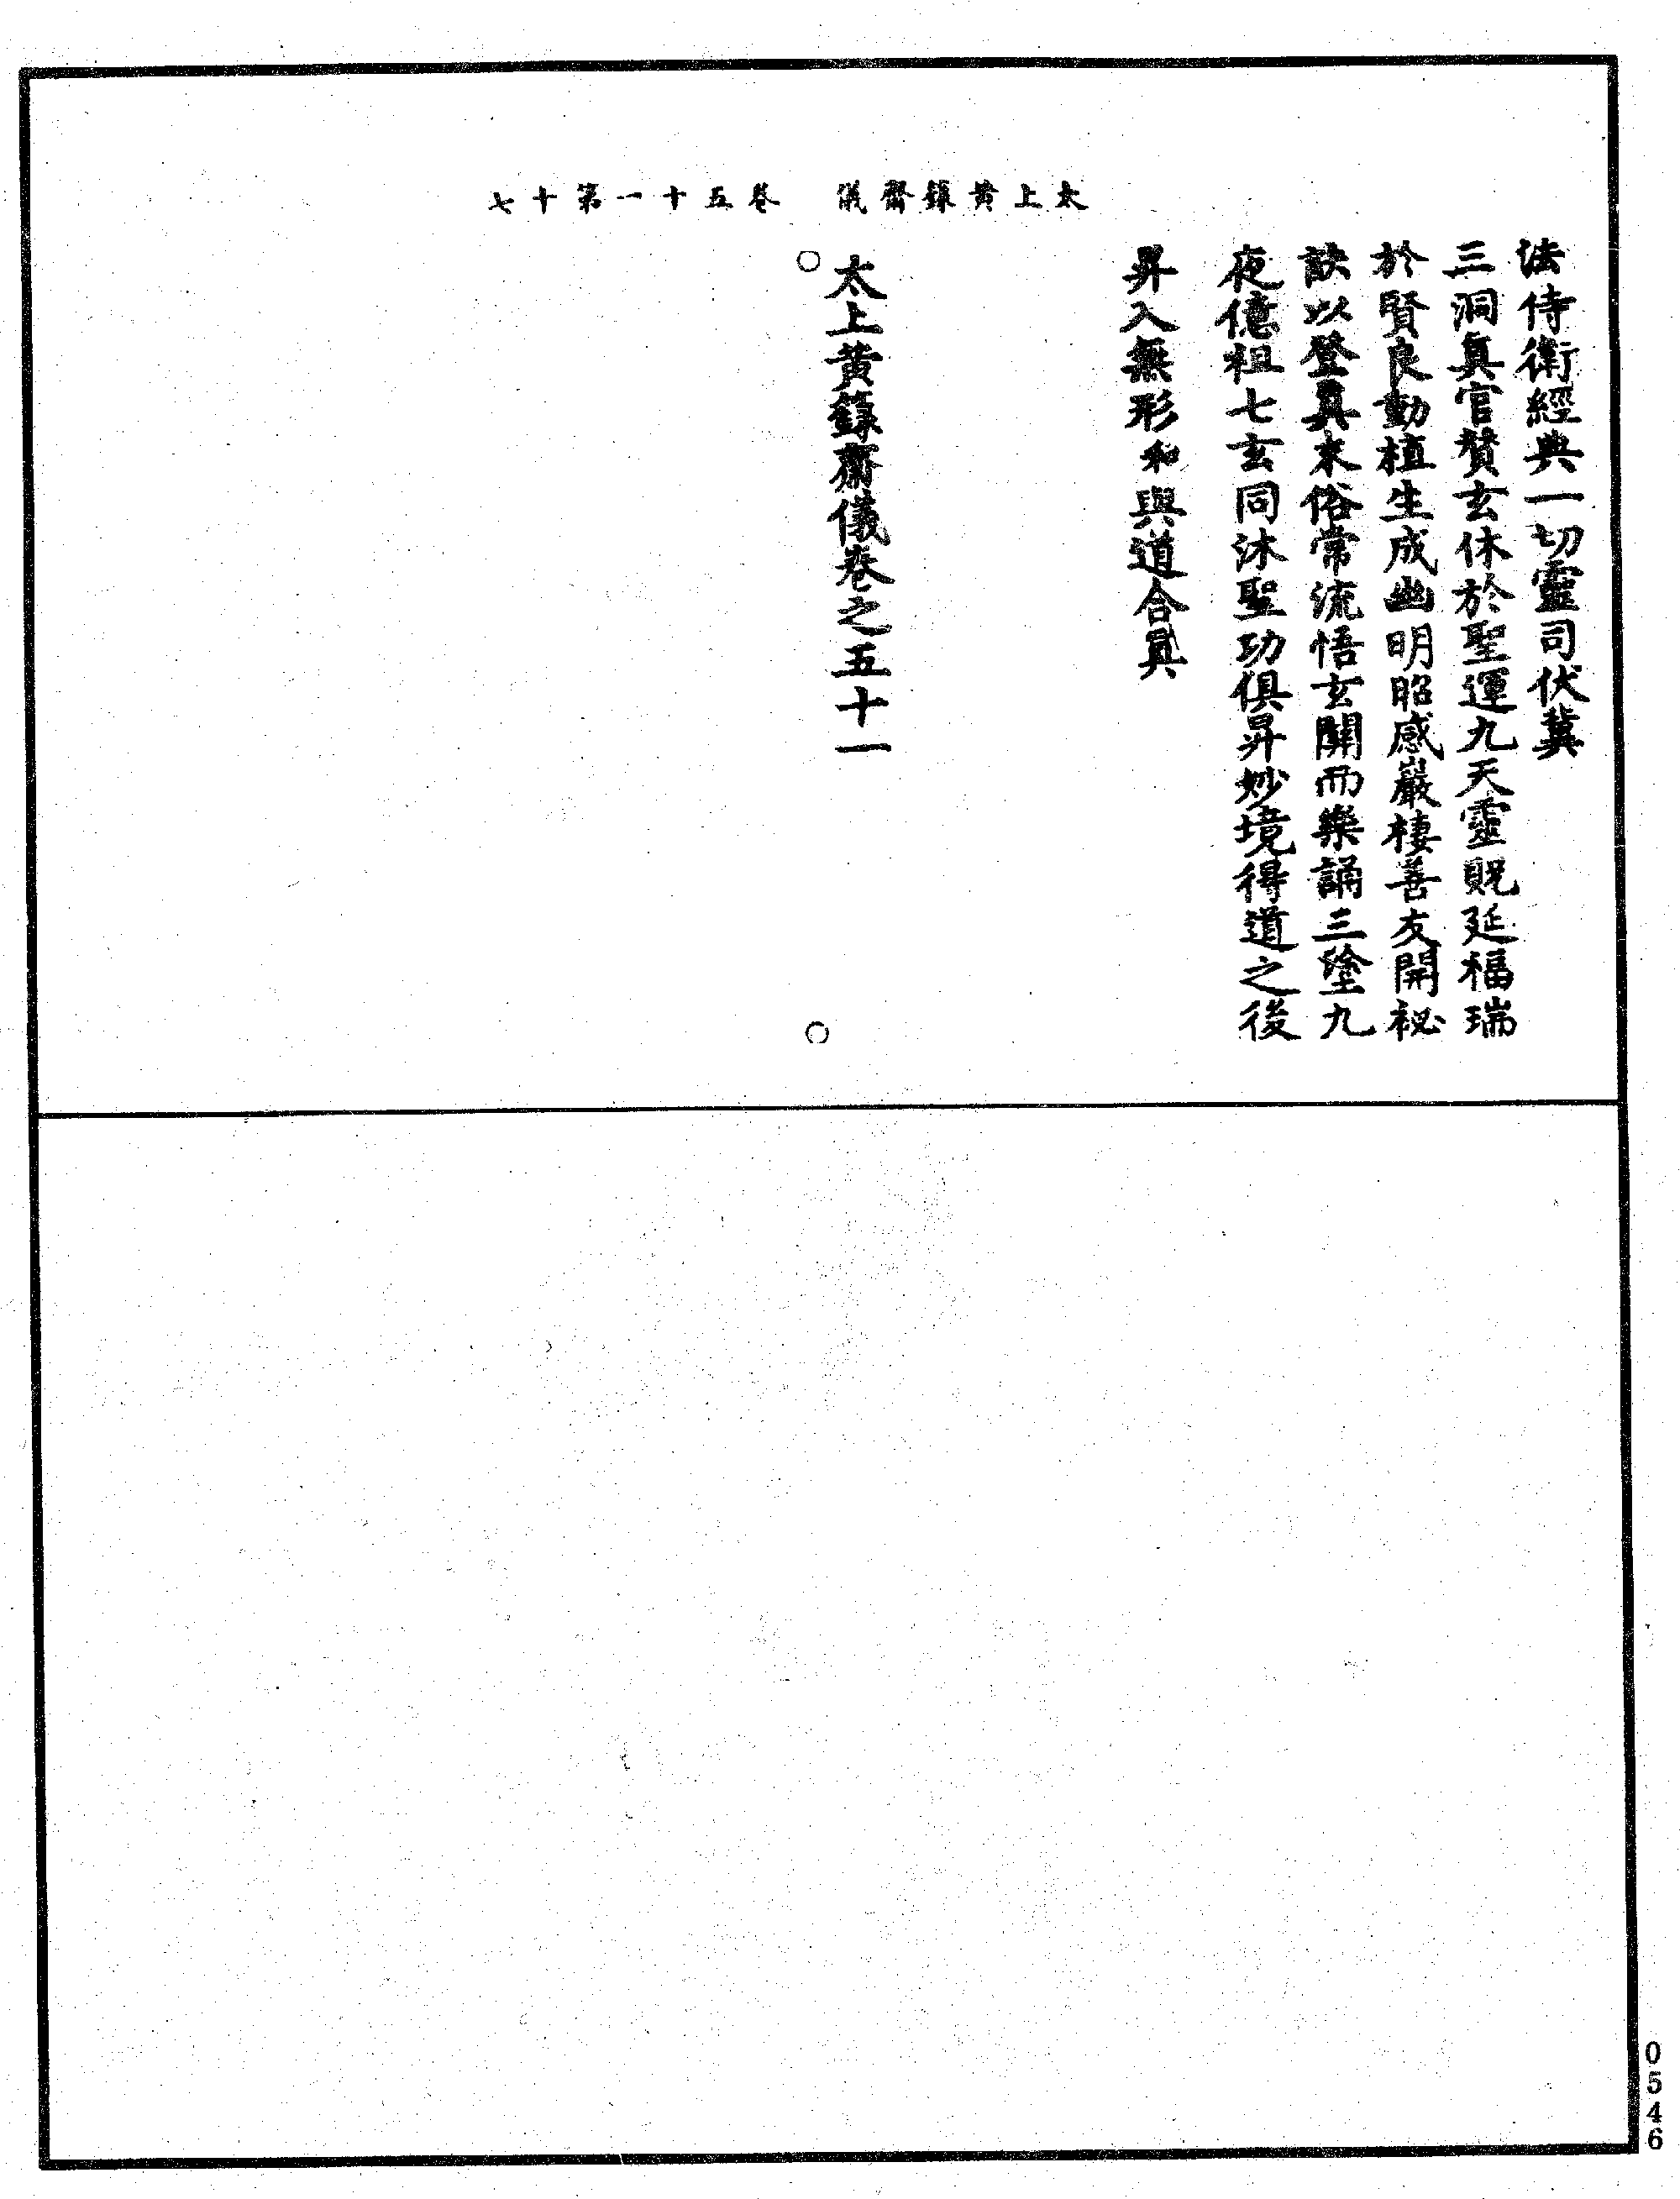 太上黃籙齋儀　卷五十一第十七
法侍衛經典一切靈司伏冀
三洞真官贊玄休於聖運九天靈貺延福瑞
於賢良動植生成幽明昭感巖棲善友開祕
訣以登真末俗常流悟玄關而樂誦三塗九
夜億祖七玄同沐聖功俱昇妙境得道之後
昇入無形和與道合真
太上黃籙齋儀卷之五十一
0546